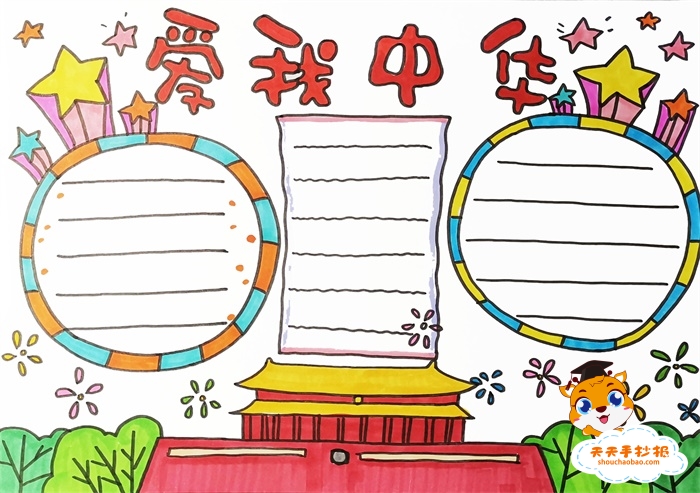 爱我中华
天天手抄报
shouchaobao.com